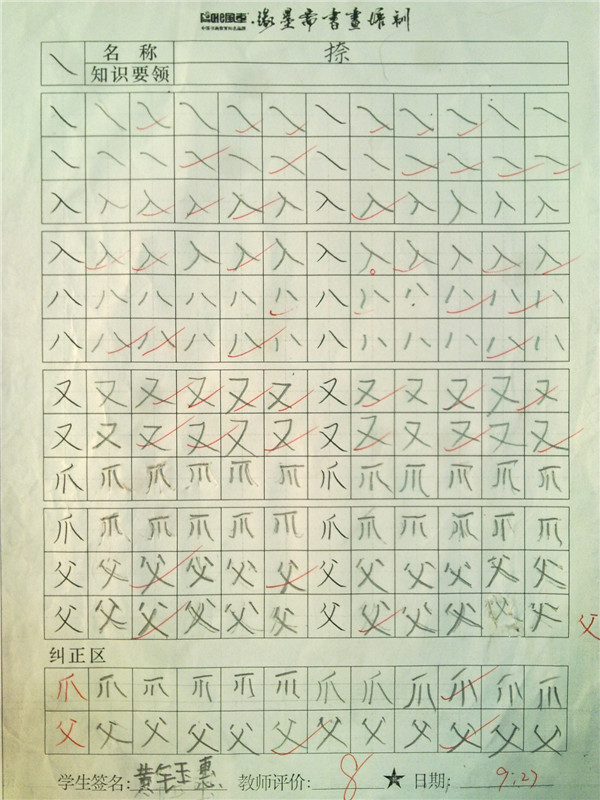 墨 書畫培訓
㇏ 名称 捺
知识要领
㇏ ㇏ ㇏ ㇏ ㇏ ㇏ ㇏ ㇏ ㇏ ㇏ ㇏ ㇏
㇏ ㇏ ㇏ ㇏ ㇏ ㇏ ㇏ ㇏ ㇏ ㇏ ㇏ ㇏
入 入 入 入 入 入 入 入 入 入 入 入
入 入 入 入 入 入 入 入 入 入 入 入
八 八 八 八 八 八 八 八 八 八 八 八
八 八 八 八 八 八 八 八 八 八 八 八
又 又 又 又 又 又 又 又 又 又 又 又
又 又 又 又 又 又 又 又 又 又 又 又
爪 爪 爪 爪 爪 爪 爪 爪 爪 爪 爪 爪
爪 爪 爪 爪 爪 爪 爪 爪 爪 爪 爪 爪
父 父 父 父 父 父 父 父 父 父 父 父
父 父 父 父 父 父 父 父 父 父 父 父 父
纠正区
爪 爪 爪 爪 爪 爪 爪 爪 爪 爪 爪 爪
父 父 父 父 父 父 父 父 父 父 父 父
学生签名: 黄 惠 教师评价: 8 ★ 日期: 9:27